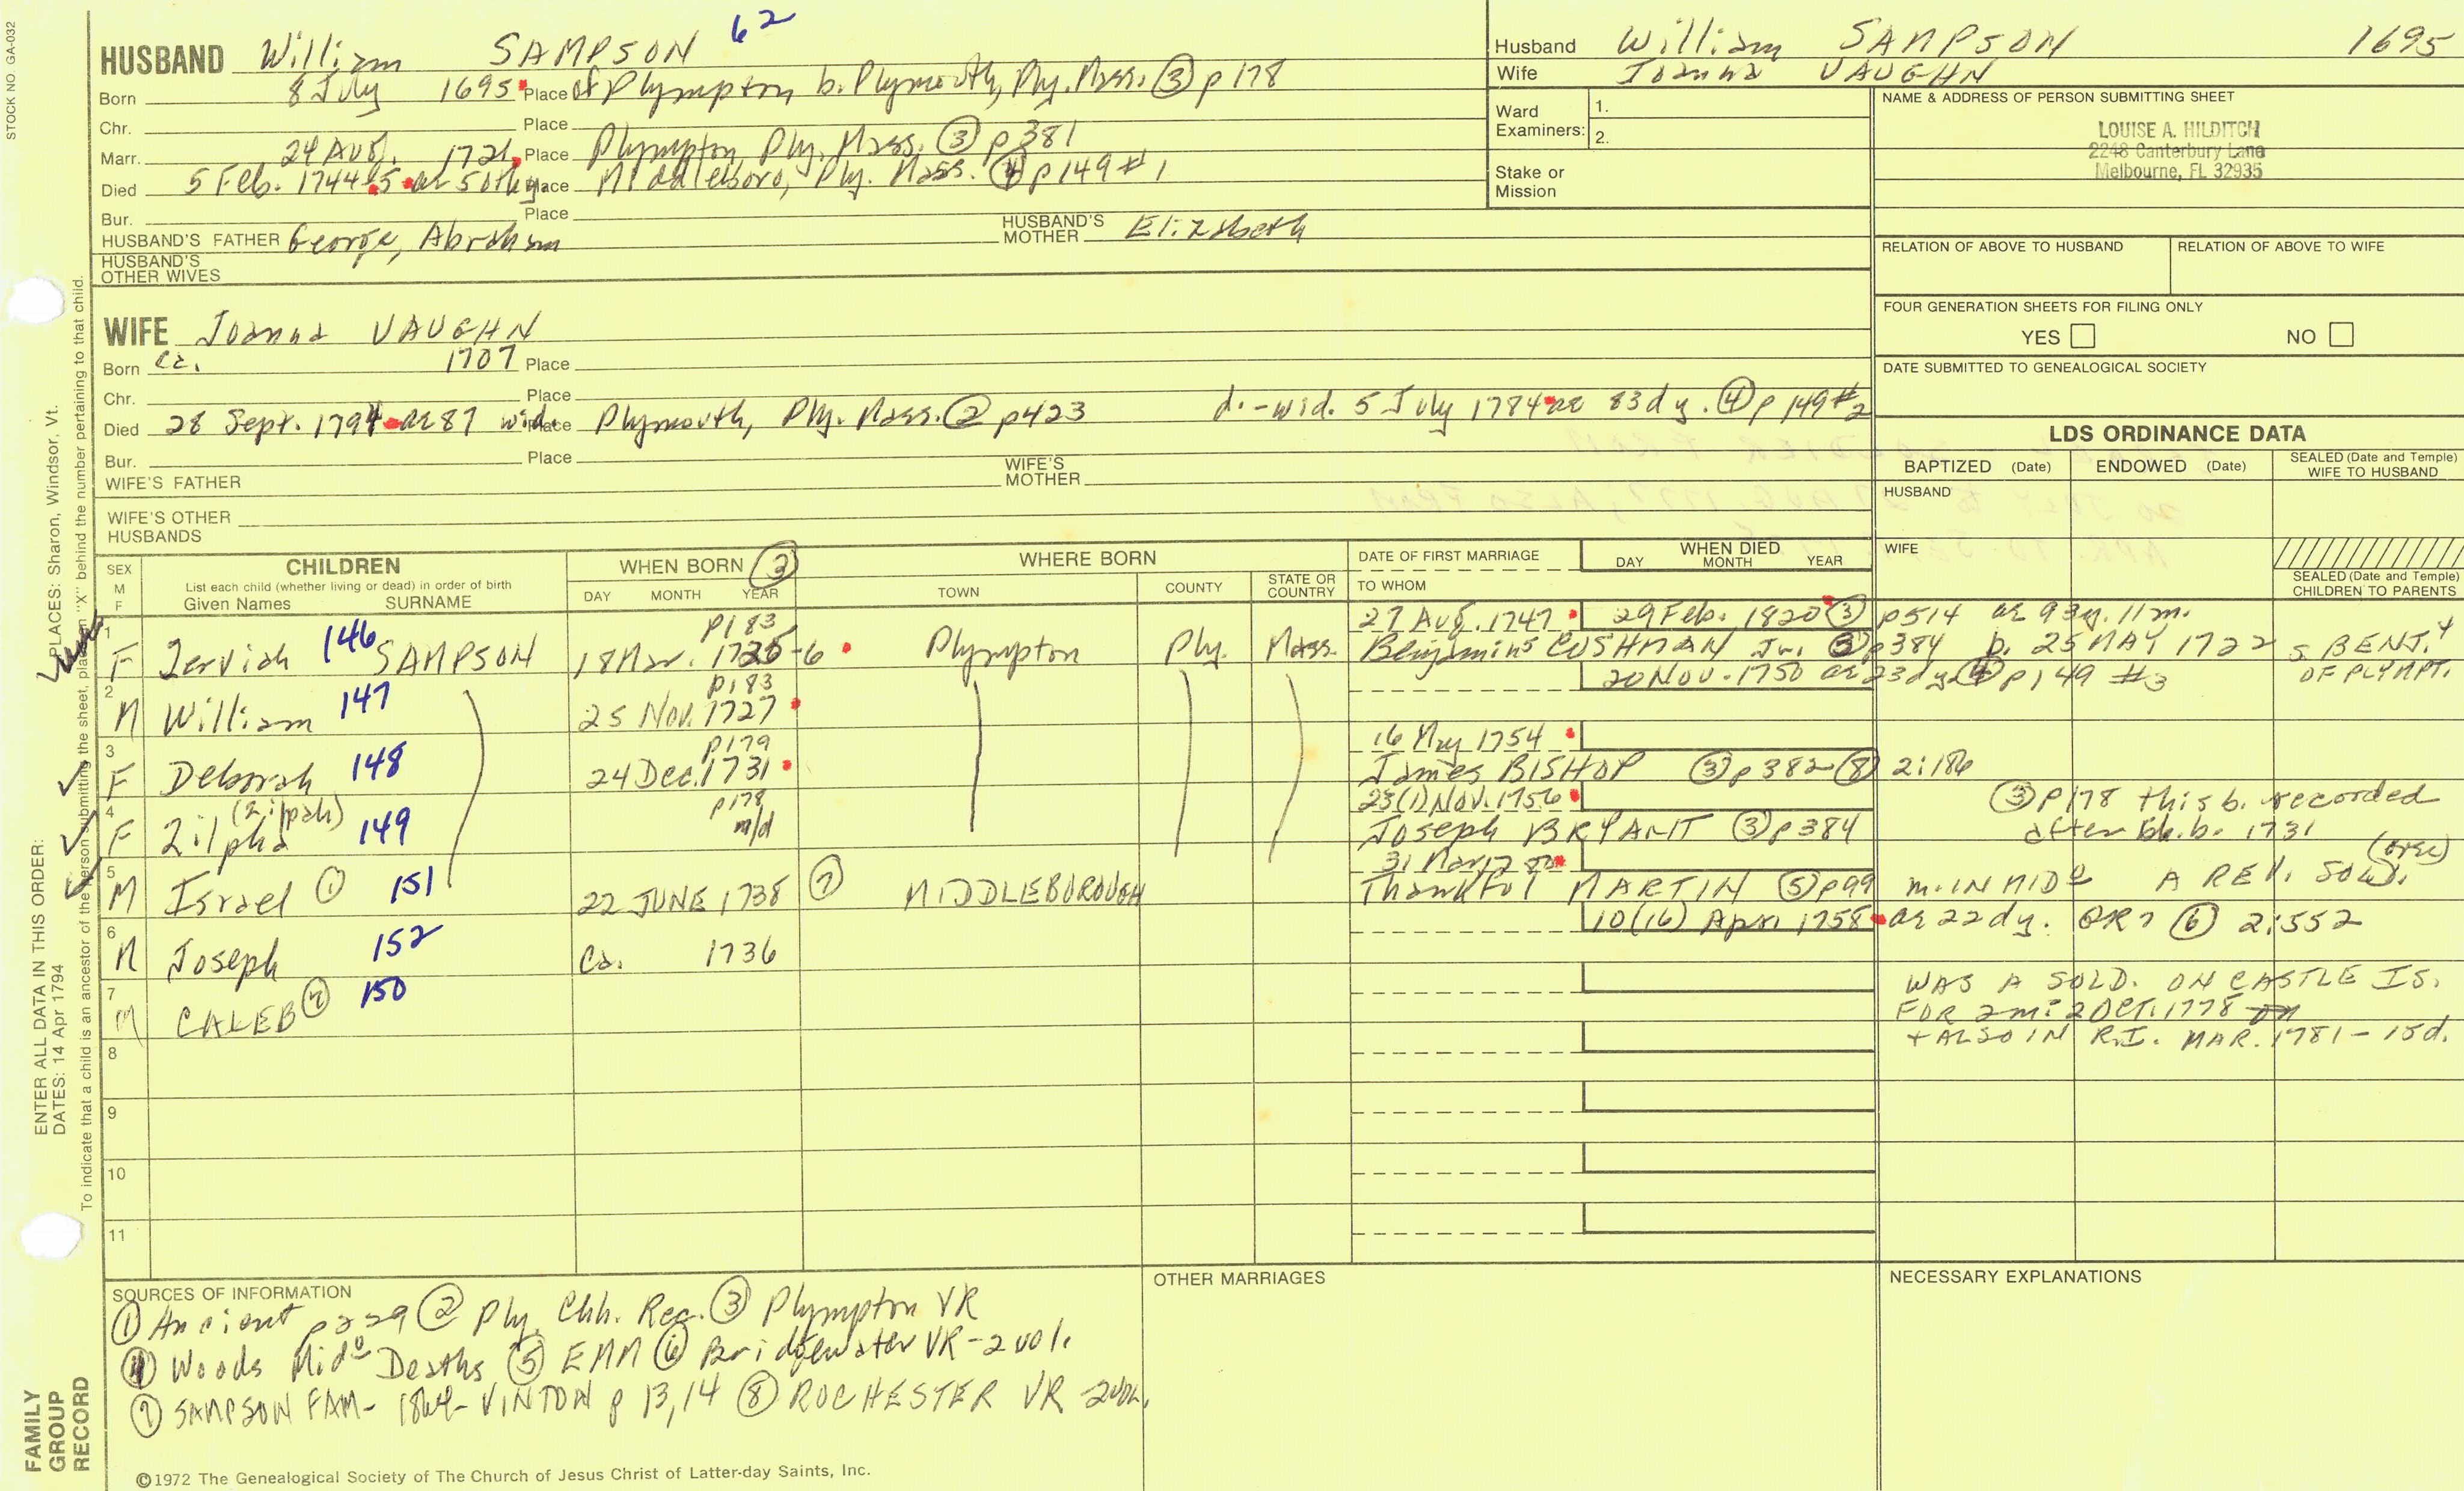 STOCK NO. GA-032
HUSBAND William SAMPSON 62
Born 8 July 1695 Place of Plympton b. Plymouth, Ply. Mass. ③ p178
Chr. Place
Marr. 24 Aug. 1721 Place Plympton, Ply. Mass. ③ p381
Died 5 Feb. 1744-5 ae 50th y Place Middleboro, Ply. Mass. ④ p149 #1
Bur. Place
HUSBAND'S FATHER George, Abraham HUSBAND'S MOTHER Elizabeth
HUSBAND'S OTHER WIVES
Husband William SAMPSON 1695
Wife Joanna VAUGHN
Ward Examiners: 1.
2.
Stake or Mission
NAME & ADDRESS OF PERSON SUBMITTING SHEET
LOUISE A. HILDITCH
2248 Canterbury Lane
Melbourne, FL 32935
RELATION OF ABOVE TO HUSBAND RELATION OF ABOVE TO WIFE
FOUR GENERATION SHEETS FOR FILING ONLY
YES NO
DATE SUBMITTED TO GENEALOGICAL SOCIETY
WIFE Joanna VAUGHN
Born ca. 1707 Place
Chr. Place
Died 28 Sept. 1794 ae 87 wid. Place Plymouth, Ply. Mass. ② p423 d.-wid. 5 July 1784 ae 83d y. ④ p149 #2
Bur. Place
WIFE'S FATHER WIFE'S MOTHER
WIFE'S OTHER HUSBANDS
LDS ORDINANCE DATA
BAPTIZED (Date) ENDOWED (Date) SEALED (Date and Temple) WIFE TO HUSBAND
HUSBAND
WIFE
SEALED (Date and Temple) CHILDREN TO PARENTS
SEX M F CHILDREN List each child (whether living or dead) in order of birth Given Names SURNAME
WHEN BORN ③ DAY MONTH YEAR
WHERE BORN TOWN COUNTY STATE OR COUNTRY
DATE OF FIRST MARRIAGE TO WHOM
WHEN DIED DAY MONTH YEAR
p183 27 Aug. 1747 29 Feb. 1820 ③ p514 ae 93y. 11m.
1 F Zerviah 146 SAMPSON 18 Mar. 1725-6 Plympton Ply. Mass. Benjamin CUSHMAN Jr. ③ p384 b. 25 MAY 1722 s BENJ. OF PLYMPT.
p183 20 Nov. 1750 ae 23d y. ④ p149 #3
2 M William 147 25 Nov. 1727
p179 16 May 1754
3 F Deborah 148 24 Dec. 1731 James BISHOP ③ p382 ⑧ 2:186
(Zilpah) p178 23(1) Nov. 1756 ③ P178 this b. recorded
4 F Zilpha 149 m/d Joseph BRYANT ③ p384 after b. 1731
31 Mar
5 M Israel ① 151 22 JUNE 1738 ⑦ MIDDLEBOROUGH Thankful MARTIN ⑤ p99 m. IN MIDo A REV. SOLD.
10(16) Apr. 1758 ae 22d y. OR? ⑥ 2:552
6 M Joseph 152 Ca. 1736
7 M CALEB ⑦ 150 WAS A SOLD. ON CASTLE IS.
FOR 2m: 2 OCT. 1778
+ ALSO IN R.I. MAR. 1781 - 15d.
8
9
10
11
SOURCES OF INFORMATION
① Ancient p229 ② Ply. Chh. Rec. ③ Plympton VR
④ Woods Mido Deaths ⑤ EMM ⑥ Bridgewater VR - 2 vol.
⑦ SAMPSON FAM - 1864 - VINTON p 13,14 ⑧ ROCHESTER VR 2 vol.
OTHER MARRIAGES
NECESSARY EXPLANATIONS
©1972 The Genealogical Society of The Church of Jesus Christ of Latter-day Saints, Inc.
FAMILY GROUP RECORD
ENTER ALL DATA IN THIS ORDER:
DATES: 14 Apr 1794
PLACES: Sharon, Windsor, Vt.
To indicate that a child is an ancestor of the person submitting the sheet, place an "X" behind the number pertaining to that child.